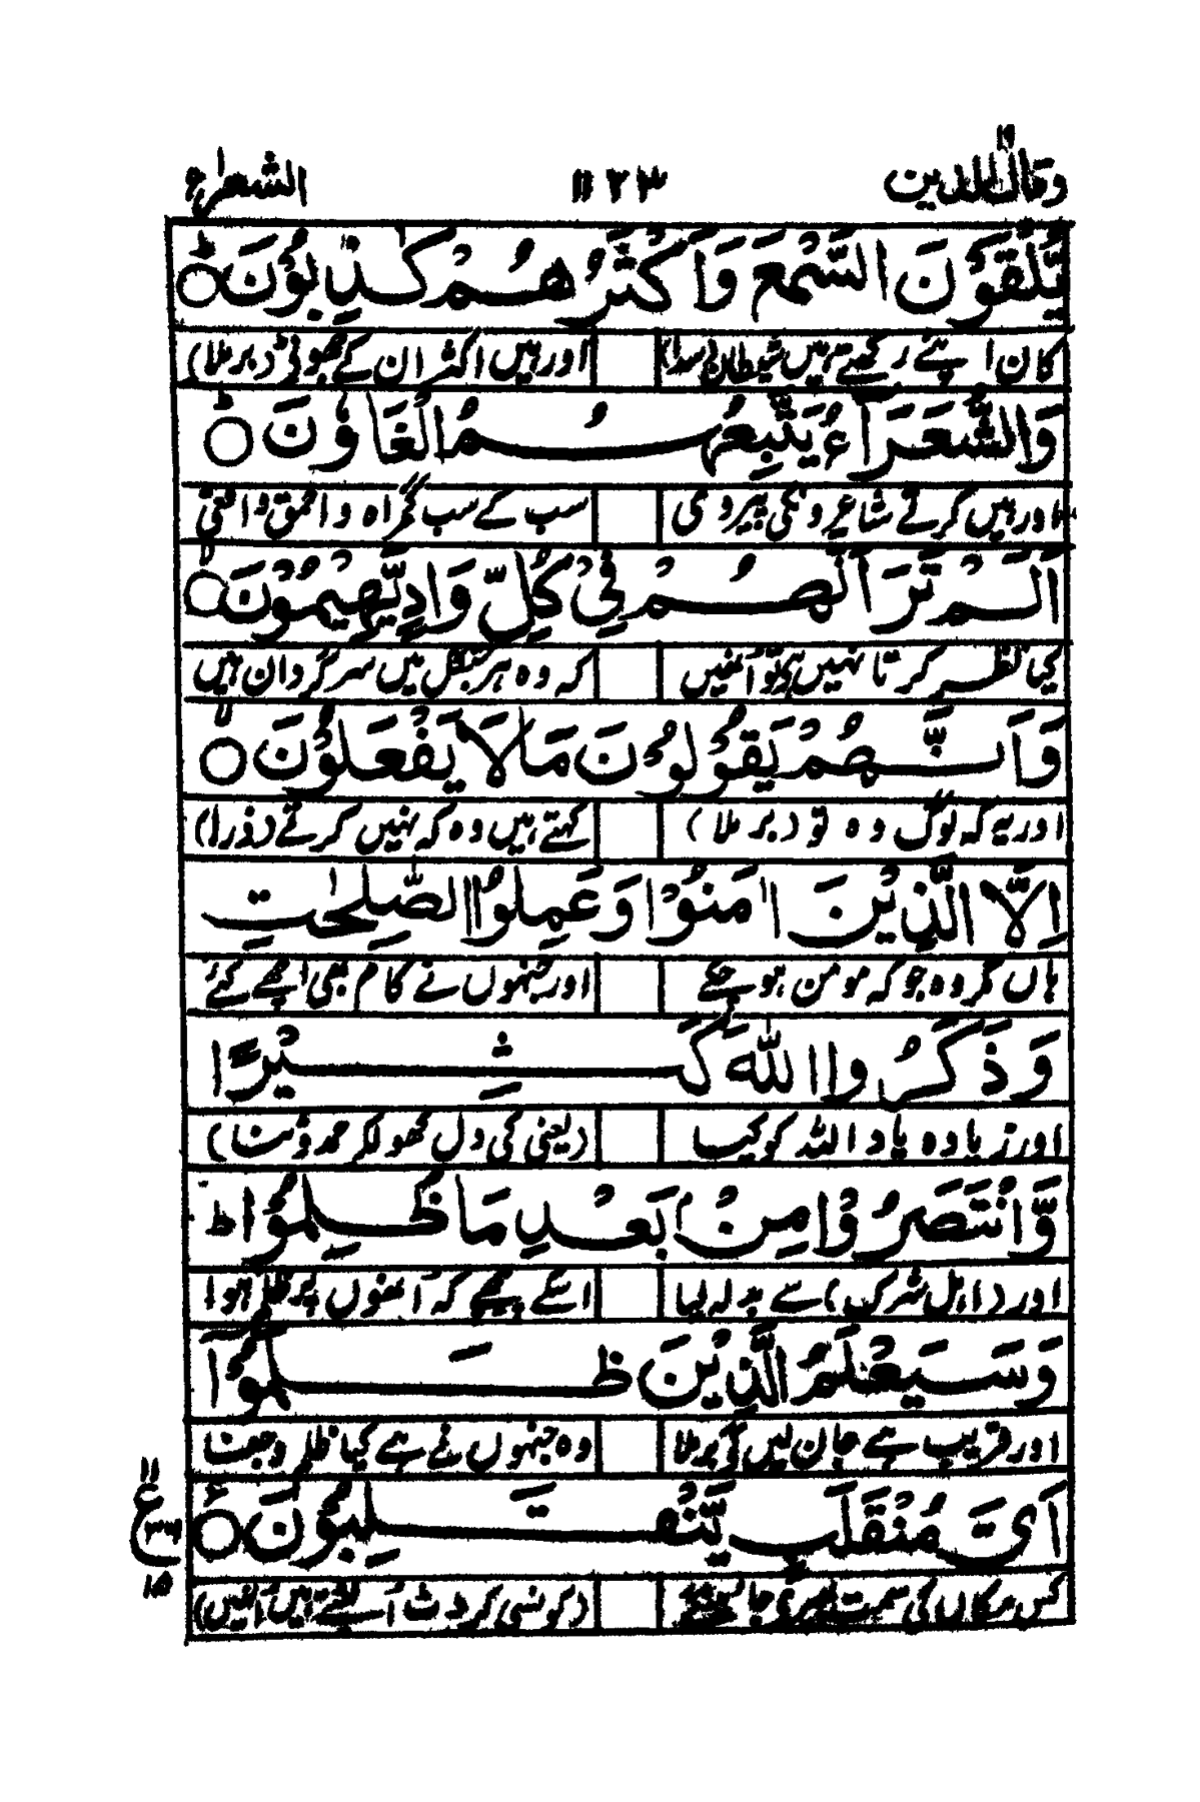 وقال الذین ۱۹ ۱۱۲۳ الشعراء
یُّلْقُوْنَ السَّمْعَ وَاَکْثَرُ ھُمْ کٰذِبُوْنَ ۝ؕ
کان اپنے رکھتے ہیں شیطاں پر سدا) اور ہیں اکثر ان کے جھوٹے (بر ملا)
وَالشُّعَرَآءُ یَتَّبِعُہُمُ الْغَاوٗنَ ۝ؕ
اور ہیں کرتے شاعرونکی پیروی سب کے سب گمراہ و احمق واقعی
اَلَمْ تَرَ اَنَّھُمْ فِیْ کُلِّ وَادٍ یَّھِیْمُوْنَ ۝ۙ
کیا نظر کرتا نہیں ہی تو اُنھیں کہ وہ ہر جنگل میں سرگرداں ہیں
وَاَنَّھُمْ یَقُوْلُوْنَ مَا لَا یَفْعَلُوْنَ ۝ۙ
اور یہ کہ لوگ وہ تو (بر ملا) کہتے ہیں وہ کہ نہیں کرتے (ذرا)
اِلَّا الَّذِیْنَ اٰمَنُوْا وَعَمِلُوا الصّٰلِحٰتِ
ہاں مگر وہ جو کہ مومن ہو چکے اور جنہوں نے کام بھی اچھے کئے
وَذَکَرُوا اللہَ کَثِیْرًا
اور زیادہ یاد اللہ کو کیا (یعنی کی دل کھولکر حمد و ثنا)
وَّانْتَصَرُوْا مِنْۢ بَعْدِ مَا ظُلِمُوْا ؕ
اور (اہل شرک) سے بدلہ لیا اسکے پیچھے کہ اُنھوں پر ظلم ہوا
وَسَیَعْلَمُ الَّذِیْنَ ظَلَمُوْٓا
اور قریب ہے جان لیں گے برملا وہ جنہوں نے ہے کیا ظلم و جفا
اَیَّ مُنْقَلَبٍ یَّنْقَلِبُوْنَ ۝
۱۱ ع ۳۶ ۱۵
کس مکاں کی سمت پھیرے جائینگے (کونسی کروٹ اُلٹتے ہیں اُنھیں)